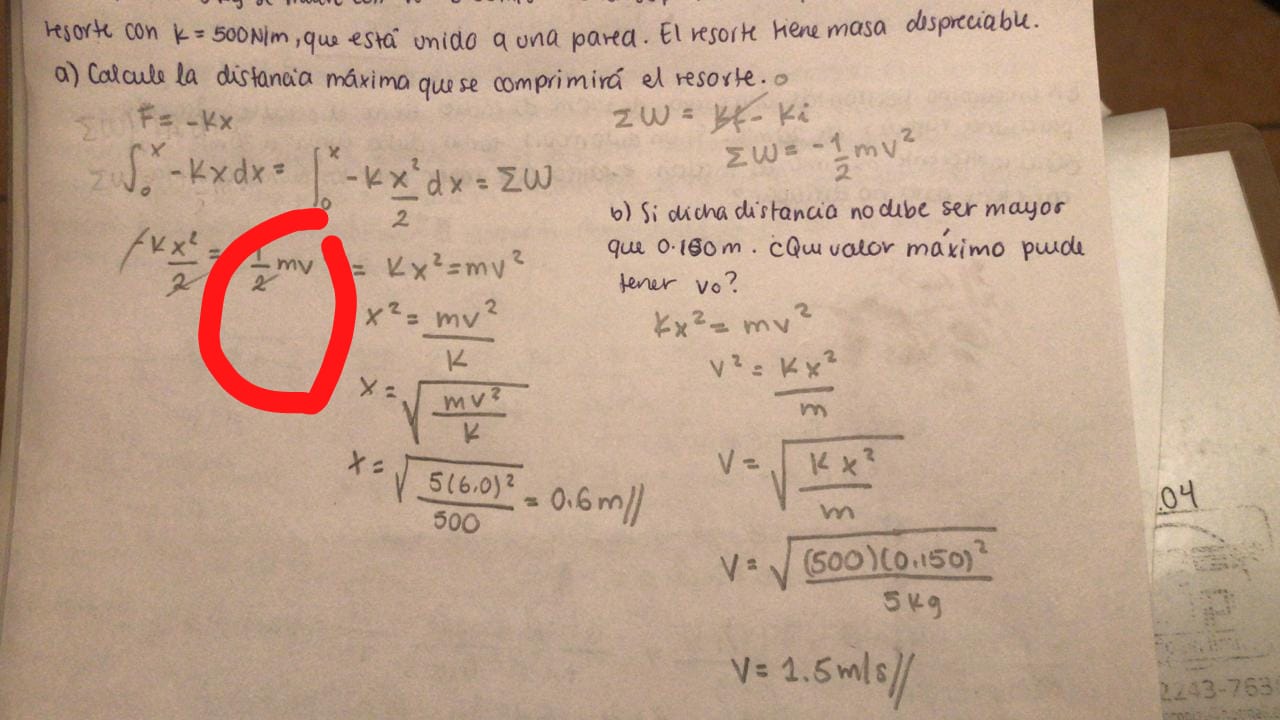 resorte con k = 500N/m, que está unido a una pared. El resorte tiene masa despreciable.
a) Calcule la distancia máxima que se comprimirá el resorte.
F = -Kx
∫₀ˣ -Kx dx = ∫₀ˣ -K x²/2 dx = ΣW
-K x²/2 = 1/2 mv = Kx² = mv²
x² = mv²/K
x = √(mv²/K)
x = √(5(6.0)²/500) = 0.6m//
ΣW = Kf - Ki
0
ΣW = -1/2 mv²
b) Si dicha distancia no debe ser mayor
que 0.150m. ¿Que valor máximo puede
tener vo?
Kx² = mv²
v² = Kx²/m
V = √(Kx²/m)
V = √((500)(0.150)²/5Kg)
V = 1.5m/s//
.04
2243-763